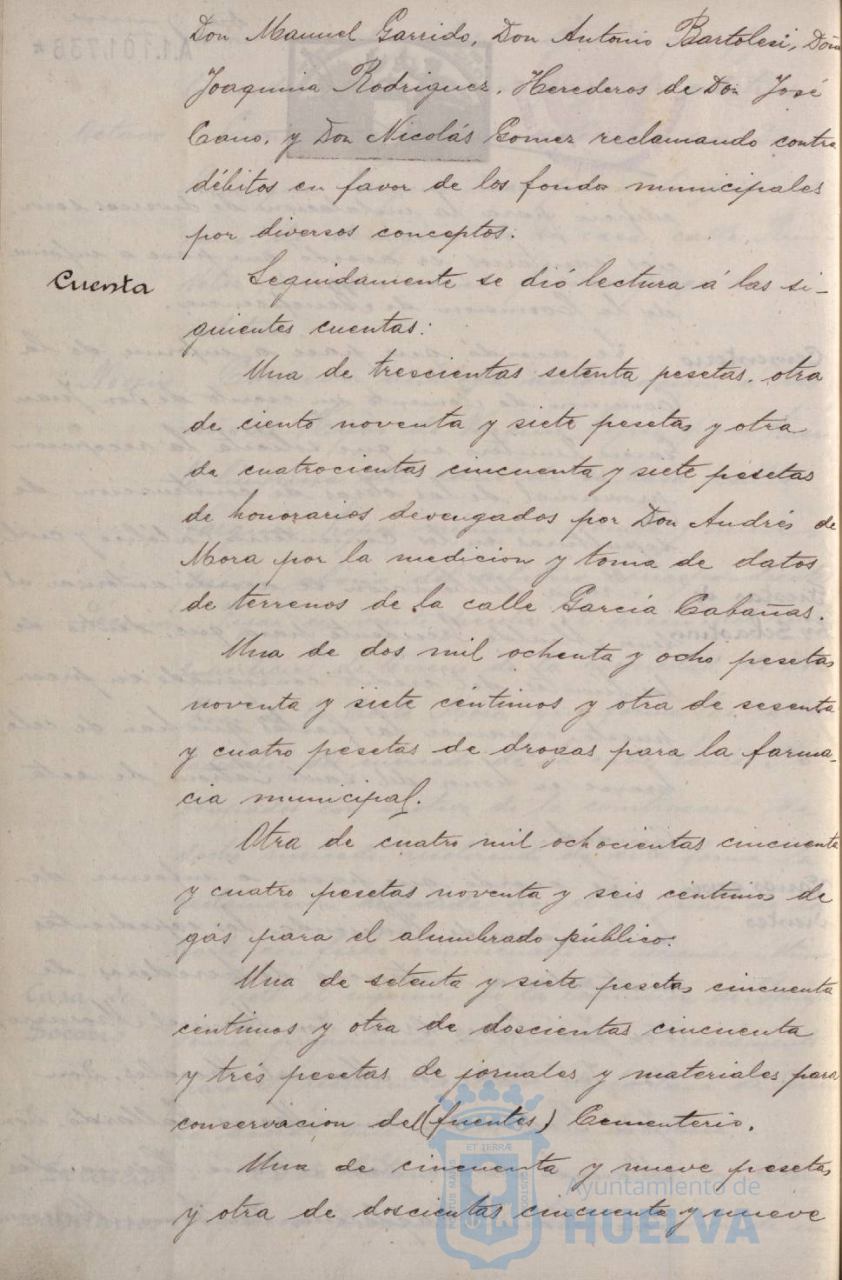 Don Manuel Garrido, Don Antonio Bartolesi, Doña
Joaquina Rodriguez, Herederos de Don José
Cano, y Don Nicolás Gomez reclamando contra
débitos en favor de los fondos municipales
por diversos conceptos.
Cuenta
Seguidamente se dió lectura á las si-
guientes cuentas:
Una de trescientas setenta pesetas, otra
de ciento noventa y siete pesetas y otra
de cuatrocientas cincuenta y siete pesetas
de honorarios devengados por Don Andrés de
Mora por la medicion y toma de datos
de terrenos de la calle Garcia Cabañas.
Una de dos mil ochenta y ocho pesetas
noventa y siete céntimos y otra de sesenta
y cuatro pesetas de drogas para la farma-
cia municipal.
Otra de cuatro mil ochocientas cincuenta
y cuatro pesetas noventa y seis céntimos de
gás para el alumbrado público.
Una de setenta y siete pesetas cincuenta
céntimos y otra de doscientas cincuenta
y trés pesetas de jornales y materiales para
conservacion del (fuentes) Cementerio.
Una de cincuenta y nueve pesetas
y otra de doscientas cincuenta y nueve
ET TERRÆ
Ayuntamiento de
HUELVA